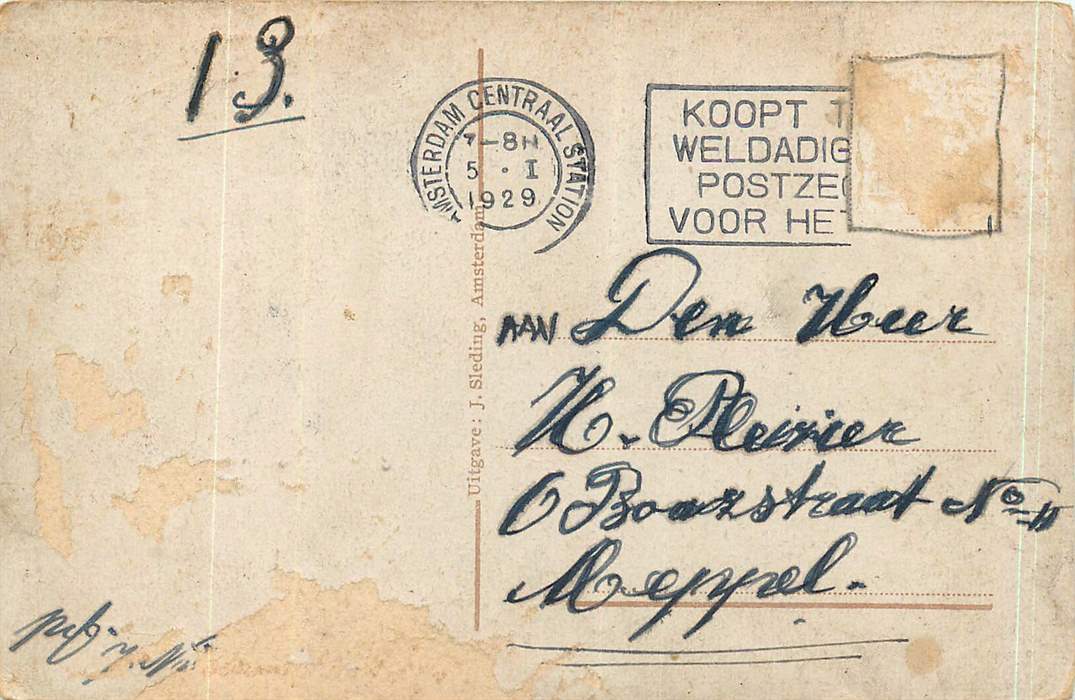 13.
AMSTERDAM CENTRAAL STATION
7-8
5 · I
1929
KOOPT
WELDADIG
POSTZE
VOOR HE
Uitgave: J. Sleding, Amsterdam
AAN Den Heer
H.
Boazstraat No
Meppel.